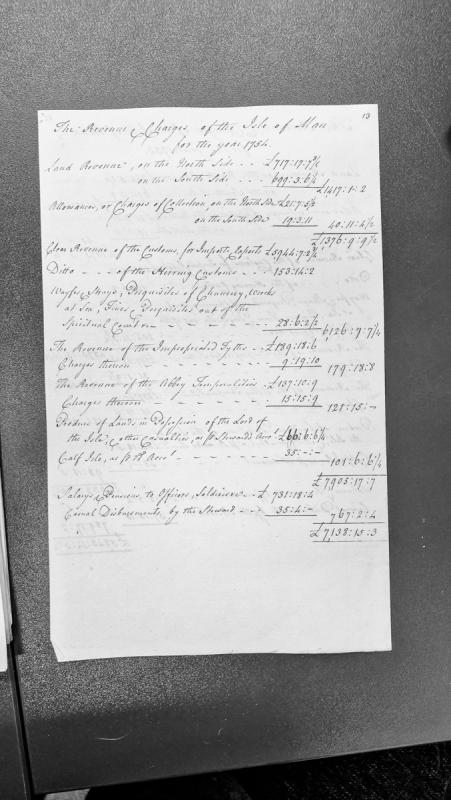 13
The Revenue & Charges of the Isle of Man
for the year 1754.
Land Revenue, on the North Side - - £717:17:7¾
on the South Side - - - 699:3:6¼
£1417:1:2
Allowances, or Charges of Collection, on the North Side £21:7:5½
on the South Side 19:3:11
40:11:4½
£1376:9:9½
Clear Revenue of the Customs, for Imports, Exports £5944:7:2¾
Ditto - - - of the Herring Customs - - - 153:14:2
Wayfs, Strays, Perquisites of Chancery, Wrecks
at Sea, Fines & Perquisites out of the
Spiritual Court - - - - - - - - 28:6:2½
6126:7:7¼
The Revenue of the Impropriated Tyths - - £189:18:6
Charges thereon - - - - - - - - 9:19:10
179:18:8
The Revenue of the Abby Temporalities - £137:10:9
Charges thereon - - - - - - - - 15:15:9
121:15:-
Produce of Lands in Possession of the Lord of
the Isle, & other Casualties, as pr Stewards Acct. £66:6:6¼
Calf Isle, as pr do. Acct. - - - - - - 35:-:-
101:6:6¼
£7905:17:7
Salarys & Pensions, to Officers, Soldiers &c - £731:18:4
Casual Disbursements, by the Steward - - - 35:4:-
767:2:4
£7,138:15:3